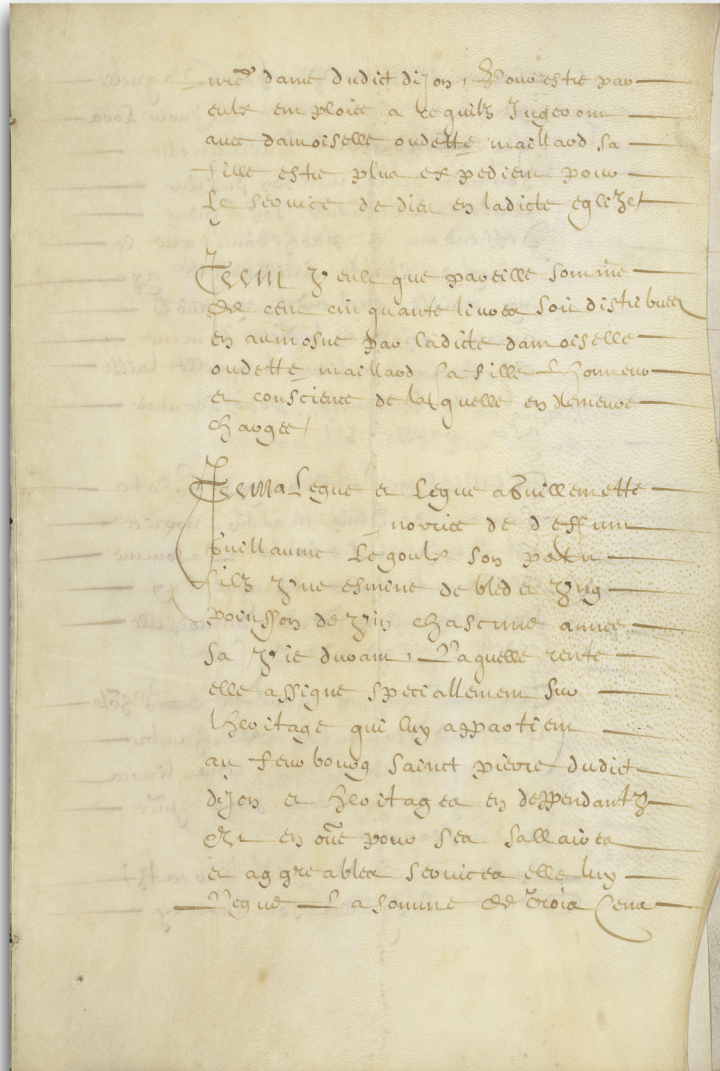 nre dame dudict dijon, Pour estre par
eulx emploiee a ce quilz Jugeront
avec damoiselle oudette maillard sa
fille estre plus expedient pour
Le service de dieu en ladicte eglize
Item Veult que pareille somme
de cent cinquante livres soit distribuee
en aumosne par ladicte damoiselle
oudette maillard sa fille Lhonneur
et conscience de laquelle en demeure
chargee
Item a Legue et Legue a Guillemette
novrice de deffunt
Guillaume Legoulx son petit
filz Vne esmine de bled et Vng
poinsson de Vin chascune annee
sa Vie durant, Laquelle rente
elle assigne speciallement sur
Lheritage qui luy appartient
au feurbourg sainct pierre dudict
dijon et heritages en deppendantz
Et en oue pour ses sallaires
et aggreables services elle luy
Legue La somme de Trois Cens